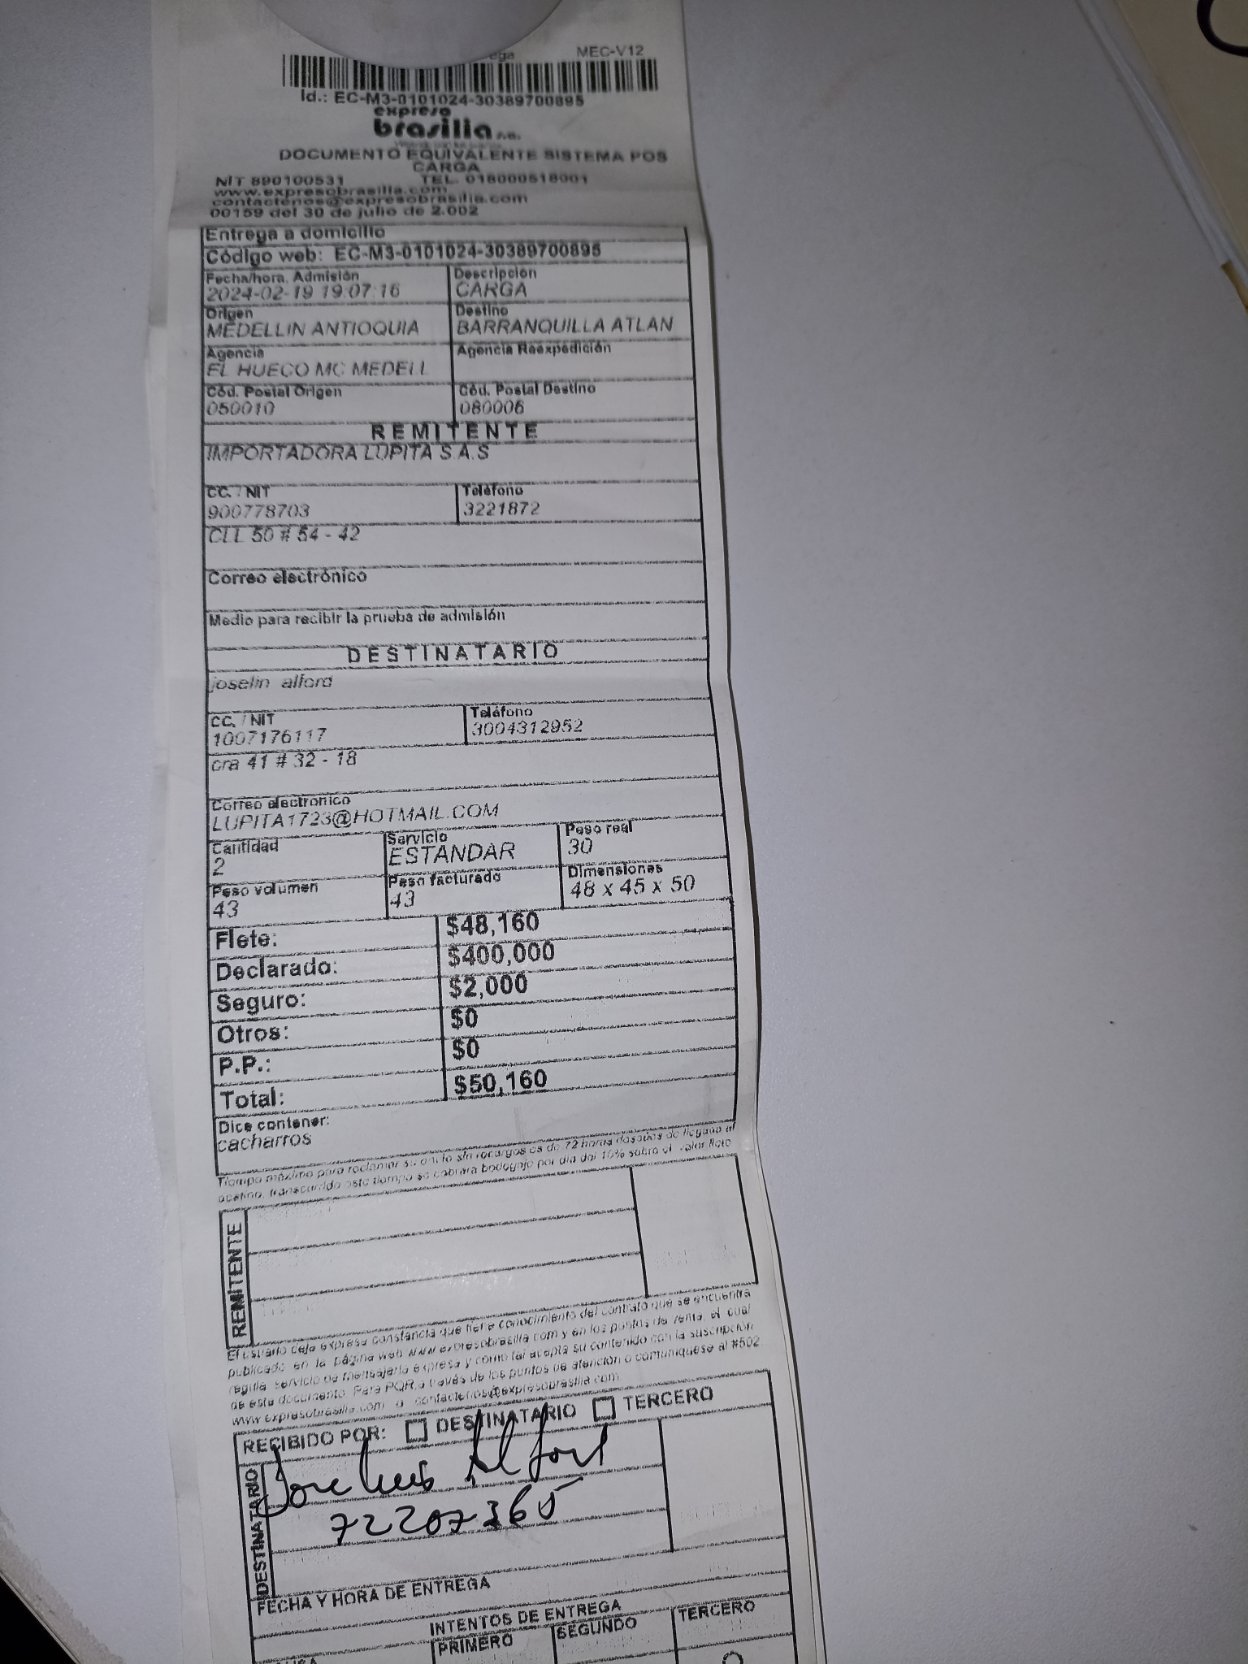 MEC-V12
Id.: EC-M3-0101024-30389700895
expreso
brasilia s.a.
DOCUMENTO EQUIVALENTE SISTEMA POS
CARGA
NIT 890100531 TEL. 018000518001
www.expresobrasilia.com
contactenos@expresobrasilia.com
00159 del 30 de julio de 2.002
Entrega a domicilio
Código web: EC-M3-0101024-30389700895
Fecha/hora. Admisión Descripción
2024-02-19 19:07:16 CARGA
Origen Destino
MEDELLIN ANTIOQUIA BARRANQUILLA ATLAN
Agencia Agencia Reexpedición
EL HUECO MC MEDELL
Cód. Postal Origen Cód. Postal Destino
050010 080006
REMITENTE
IMPORTADORA LUPITA S.A.S
CC. / NIT Teléfono
900778703 3221872
CLL 50 # 54 - 42
Correo electrónico
Medio para recibir la prueba de admisión
DESTINATARIO
joselin alford
CC. / NIT Teléfono
1007176117 3004312952
cra 41 # 32 - 18
Correo electronico
LUPITA1723@HOTMAIL.COM
Cantidad Servicio Peso real
2 ESTANDAR 30
Peso volumen Peso facturado Dimensiones
43 43 48 x 45 x 50
Flete: $48,160
Declarado: $400,000
Seguro: $2,000
Otros: $0
P.P.: $0
Total: $50,160
Dice contener:
cacharros
Tiempo máximo para reclamar su envío sin recargos es de 72 horas después de llegado al
destino, transcurrido este tiempo se cobrará bodegaje por día del 10% sobre el valor flete
REMITENTE
El usuario deja expresa constancia que tiene conocimiento del contrato que se encuentra
publicado en la página web www.expresobrasilia.com y en los puntos de venta, el cual
regula servicio de mensajería expresa y como tal acepta su contenido con la suscripción
de este documento. Para PQR a través de los puntos de atención o comuníquese al #502
www.expresobrasilia.com o contactenos@expresobrasilia.com
RECIBIDO POR: DESTINATARIO TERCERO
DESTINATARIO
Jose Luis Alford
72207365
FECHA Y HORA DE ENTREGA
INTENTOS DE ENTREGA
PRIMERO SEGUNDO TERCERO